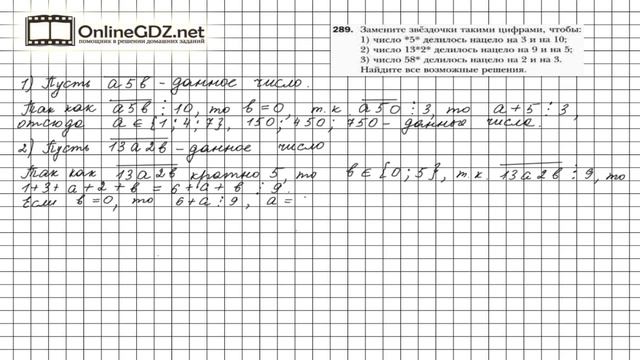 OnlineGDZ.net
помощник в решении домашних заданий
289. Замените звёздочки такими цифрами, чтобы:
1) число *5* делилось нацело на 3 и на 10;
2) число 13*2* делилось нацело на 9 и на 5;
3) число 58* делилось нацело на 2 и на 3.
Найдите все возможные решения.
1) Пусть a5в - данное число.
Так как a5в ⋮ 10, то в=0, т.к a50 ⋮ 3, то a+5 ⋮ 3,
отсюда a ∈ {1; 4; 7}, 150; 450; 750 - данные числа.
2) Пусть 13a2в - данное число
Так как 13a2в кратно 5, то в ∈ {0; 5}, т.к 13a2в ⋮ 9, то
1+3+a+2+в = 6+a+в ⋮ 9.
Если в=0, то 6+a ⋮ 9, a=